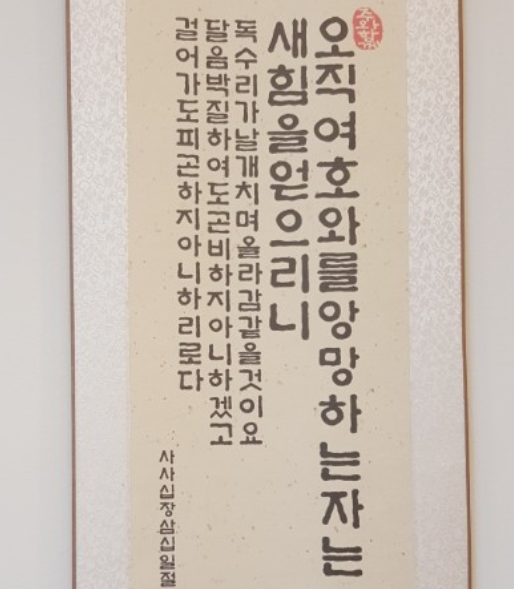 오직여호와를앙망하는자는
새힘을얻으리니
독수리가날개치며올라감같을것이요
달음박질하여도곤비하지아니하겠고
걸어가도피곤하지아니하리로다
사사십장삼십일절